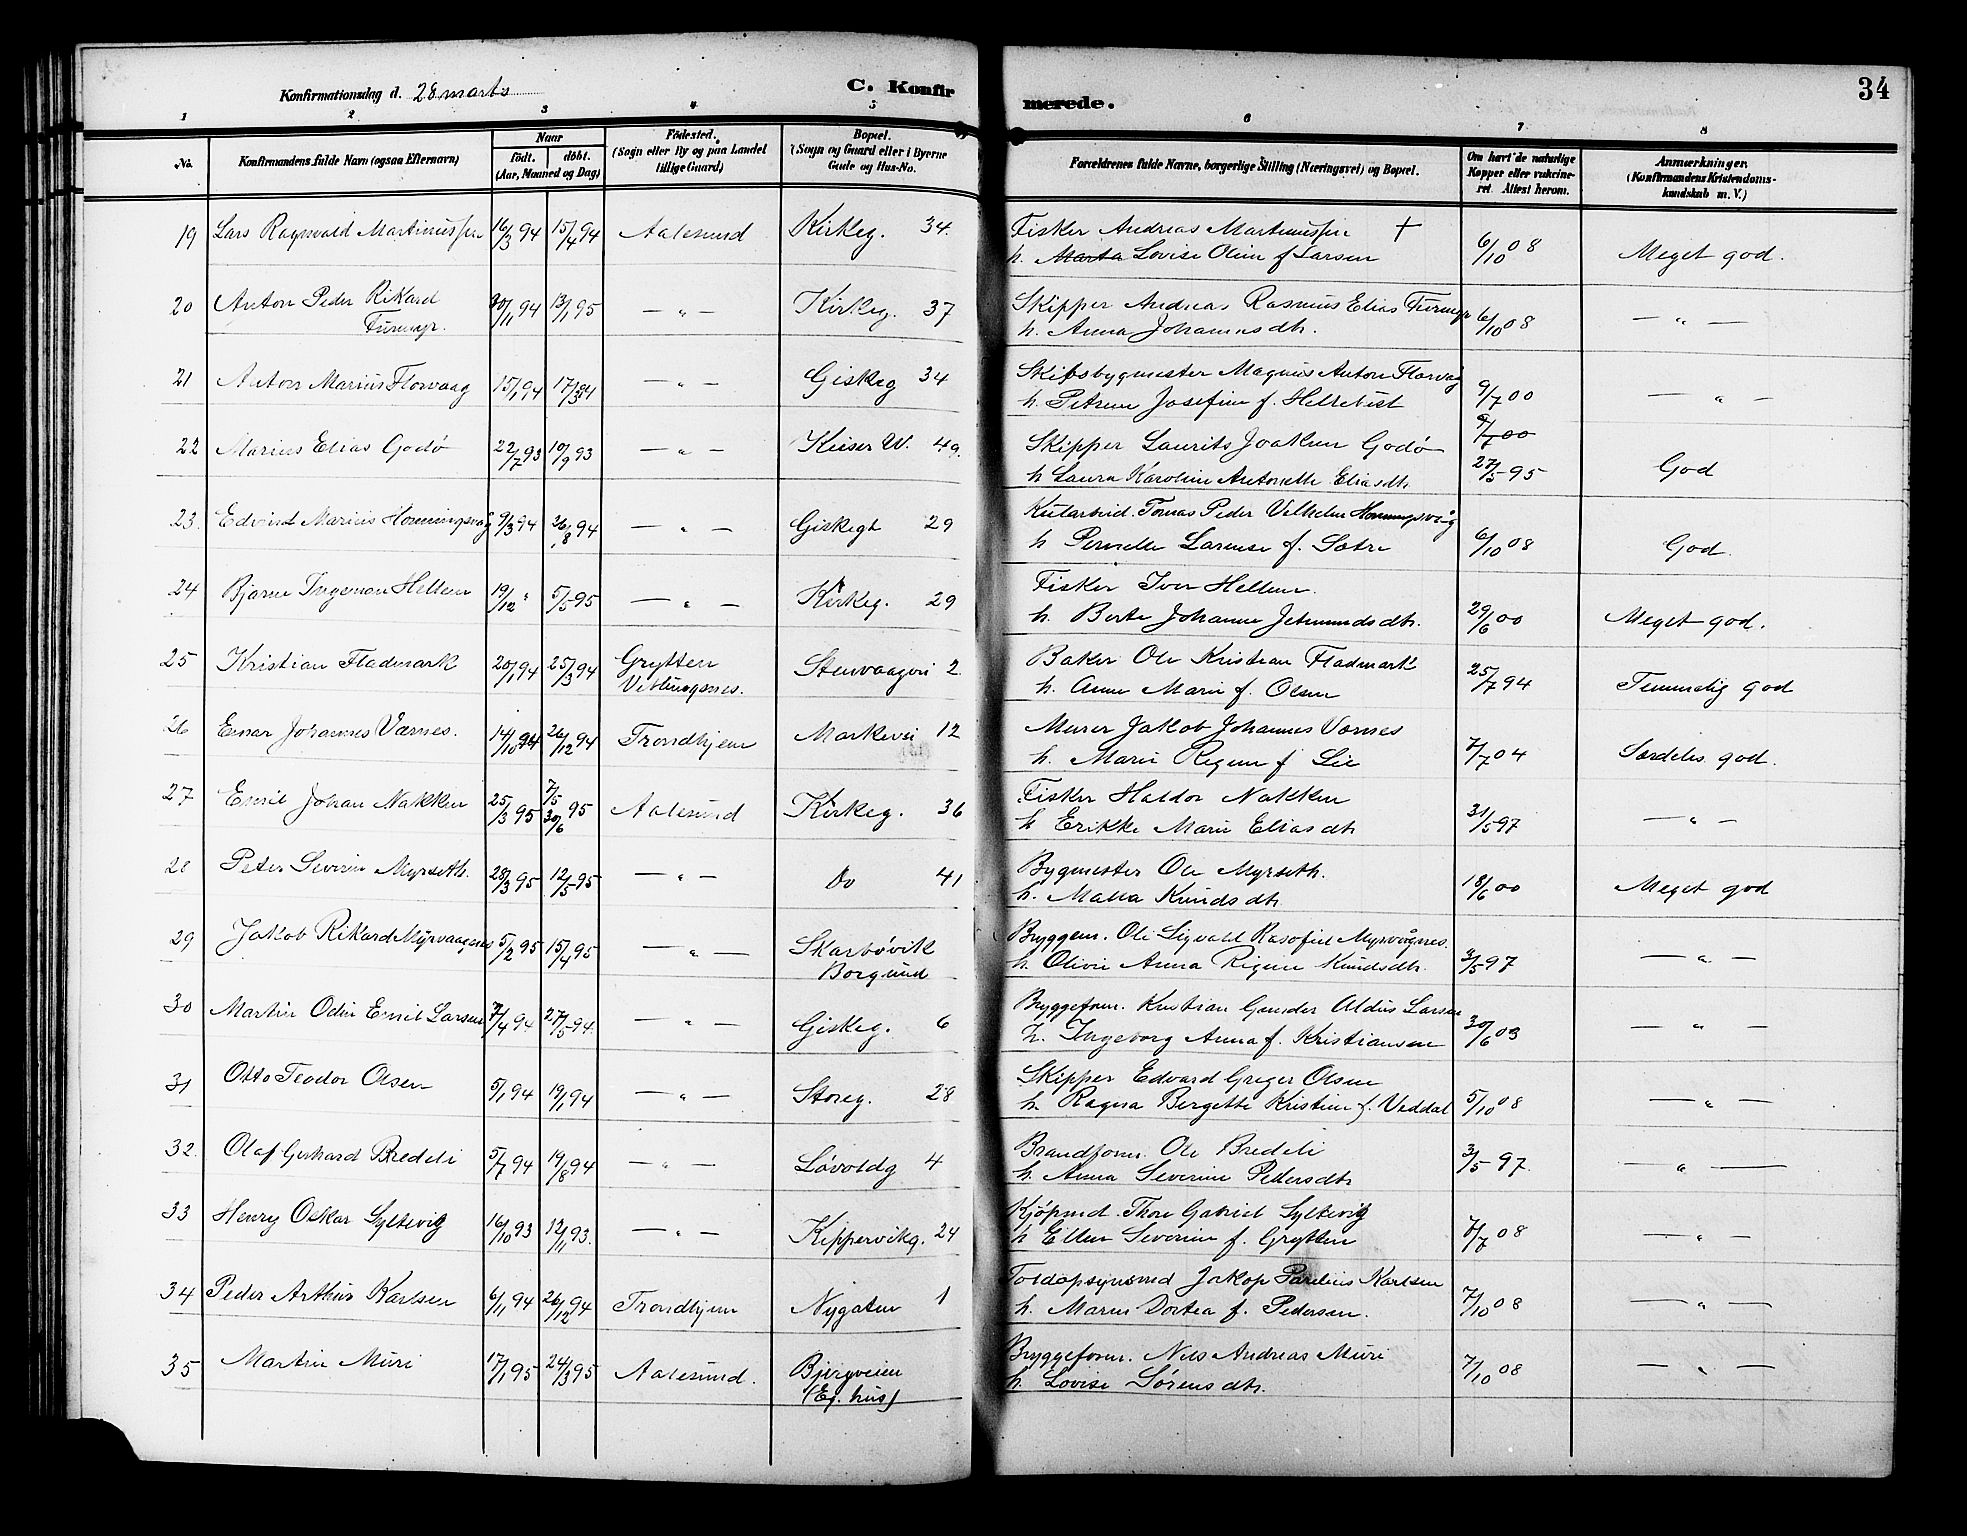 34
Konfirmationsdag d. 28 marts
C. Konfir
merede.
1 2 3 4 5 6 7 8
No.
Konfirmandens fulde Navn (ogsaa Efternavn)
Naar
födt. döbt.
(Aar, Maaned og Dag)
Födested.
(Sogn eller By og paa Landet
tillige Gaard)
Bopæl.
(Sogn og Gaard eller i Byerne
Gade og Hus-No.
Forældrenes fulde Navne, borgerlige Stilling (Næringsvei) og Bopæl.
Om havt de naturlige
Kopper eller vakcine-
ret. Attest herom.
Anmærkninger.
(Konfirmandens Kristendoms-
kundskab m. V.)
19 Lars Ragnvald Martinussen 16/3 94 15/4 94 Aalesund Kirkeg. 34. Fisker Andreas Martinussen +
h. Marta Lovise Oline f Larsen 6/10 08 Meget god.
20 Anton Peder Rikard 30/11 94 13/1 95 — " — Kirkeg. 37 Skipper Andreas Rasmus Elias Furmyr
Furmyr. h. Anna Johannesdtr. 6/10 08 — " —
21 Anton Marius Florvaag 15/1 94 17/3 94 — " — Giskeg 34 Skibsbygmester Magnus Anton Florvåg
h. Petrine Josefine f. Hellebust 9/7 00 — " —
22 Marius Elias Godø 22/7 93 10/9 93 — " — Keiser W. 49. Skipper Laurits Joakim Godø 9/7 00
h Laura Karoline Antonette Eliasdtr. 27/5 95 God
23. Edvind Marius Honningsvåg 9/3 94 26/8 94 — " — Giskegt 29 Kularbeid. Tomas Peder Vilhelm Honningsvåg
h Pernille Larense f. Sætre 6/10 08 God.
24 Bjarne Ingeman Hellem 19/12 " 5/5 95 — " — Kirkeg. 29 Fisker Iver Hellem.
h. Berte Johanne Jetmundsdtr. 29/6 00 Meget god.
25 Kristian Fladmark 20/1 94 25/3 94 Grytten
Veblungsnes. Stenvaagvei 2. Baker Ole Kristian Fladmark
h. Anne Marie f. Olsen 25/7 94 Temmelig god
26 Einar Johannes Værnes. 14/10 94 26/12 94 Trondhjem Markevei 12 Murer Jakob Johannes Værnes
h. Marie Regine f Lie 7/7 04 Særdeles god.
27 Emil Johan Nakken 25/3 95 7/5 30/6 95 Aalesund Kirkeg. 36 Fisker Haldor Nakken
h Erikke Marie Eliasdtr 31/5 97 — " —
28 Peter Severin Myrseth. 28/3 95 12/5 95 — " — Do 41 Bygmester Ole Myrseth.
h. Malla Knudsdtr 18/6 00 Meget god
29 Jakob Rikard Myrvaagnes 5/2 95 15/4 95 — " — Skarbøvik
Borgund Bryggem. Ole Sigvald Rasofiel Myrvågnes.
h. Olivie Anna Regine Knudsdtr. 3/5 97 — " —
30 Martin Odin Emil Larsen 7/4 94 27/5 94. — " — Giskeg. 6 Bryggeform. Kristian Gunder Aldus Larsen
h. Ingeborg Anna f. Kristiansen 30/6 03 — " —
31 Otto Teodor Olsen 5/1 94 19/1 94 — " — Storeg. 28 Skipper Edvard Greger Olsen
h. Ragna Bergette Kristine f. Veddal 5/10 08 — " —
32. Olaf Gerhard Bredeli 5/7 94 19/8 94 — " — Løvoldg 4 Brandform. Ole Bredeli
h. Anna Severine Pedersdtr 3/5 97. — " —
33 Henry Oskar Syltevig 16/10 93 12/11 93. — " — Kippervikg. 24 Kjøpmd. Thore Gabriel Syltevig
h Ellen Severine f. Grytten 7/7 08 — " —
34 Peder Arthur Karlsen 6/11 94 26/12 94 Trondhjem Nygaten 1 Toldopsynsmd Jakop Parelius Karlsen
h. Maren Dortea f. Pedersen. 7/10 08 — " —
35 Martin Muri 17/1 95 24/3 95 Aalesund. Bjergveien
(Eg. hus) Bryggeform. Nils Andreas Muri
h. Lovise Sørensdtr. 7/10 08 — " —